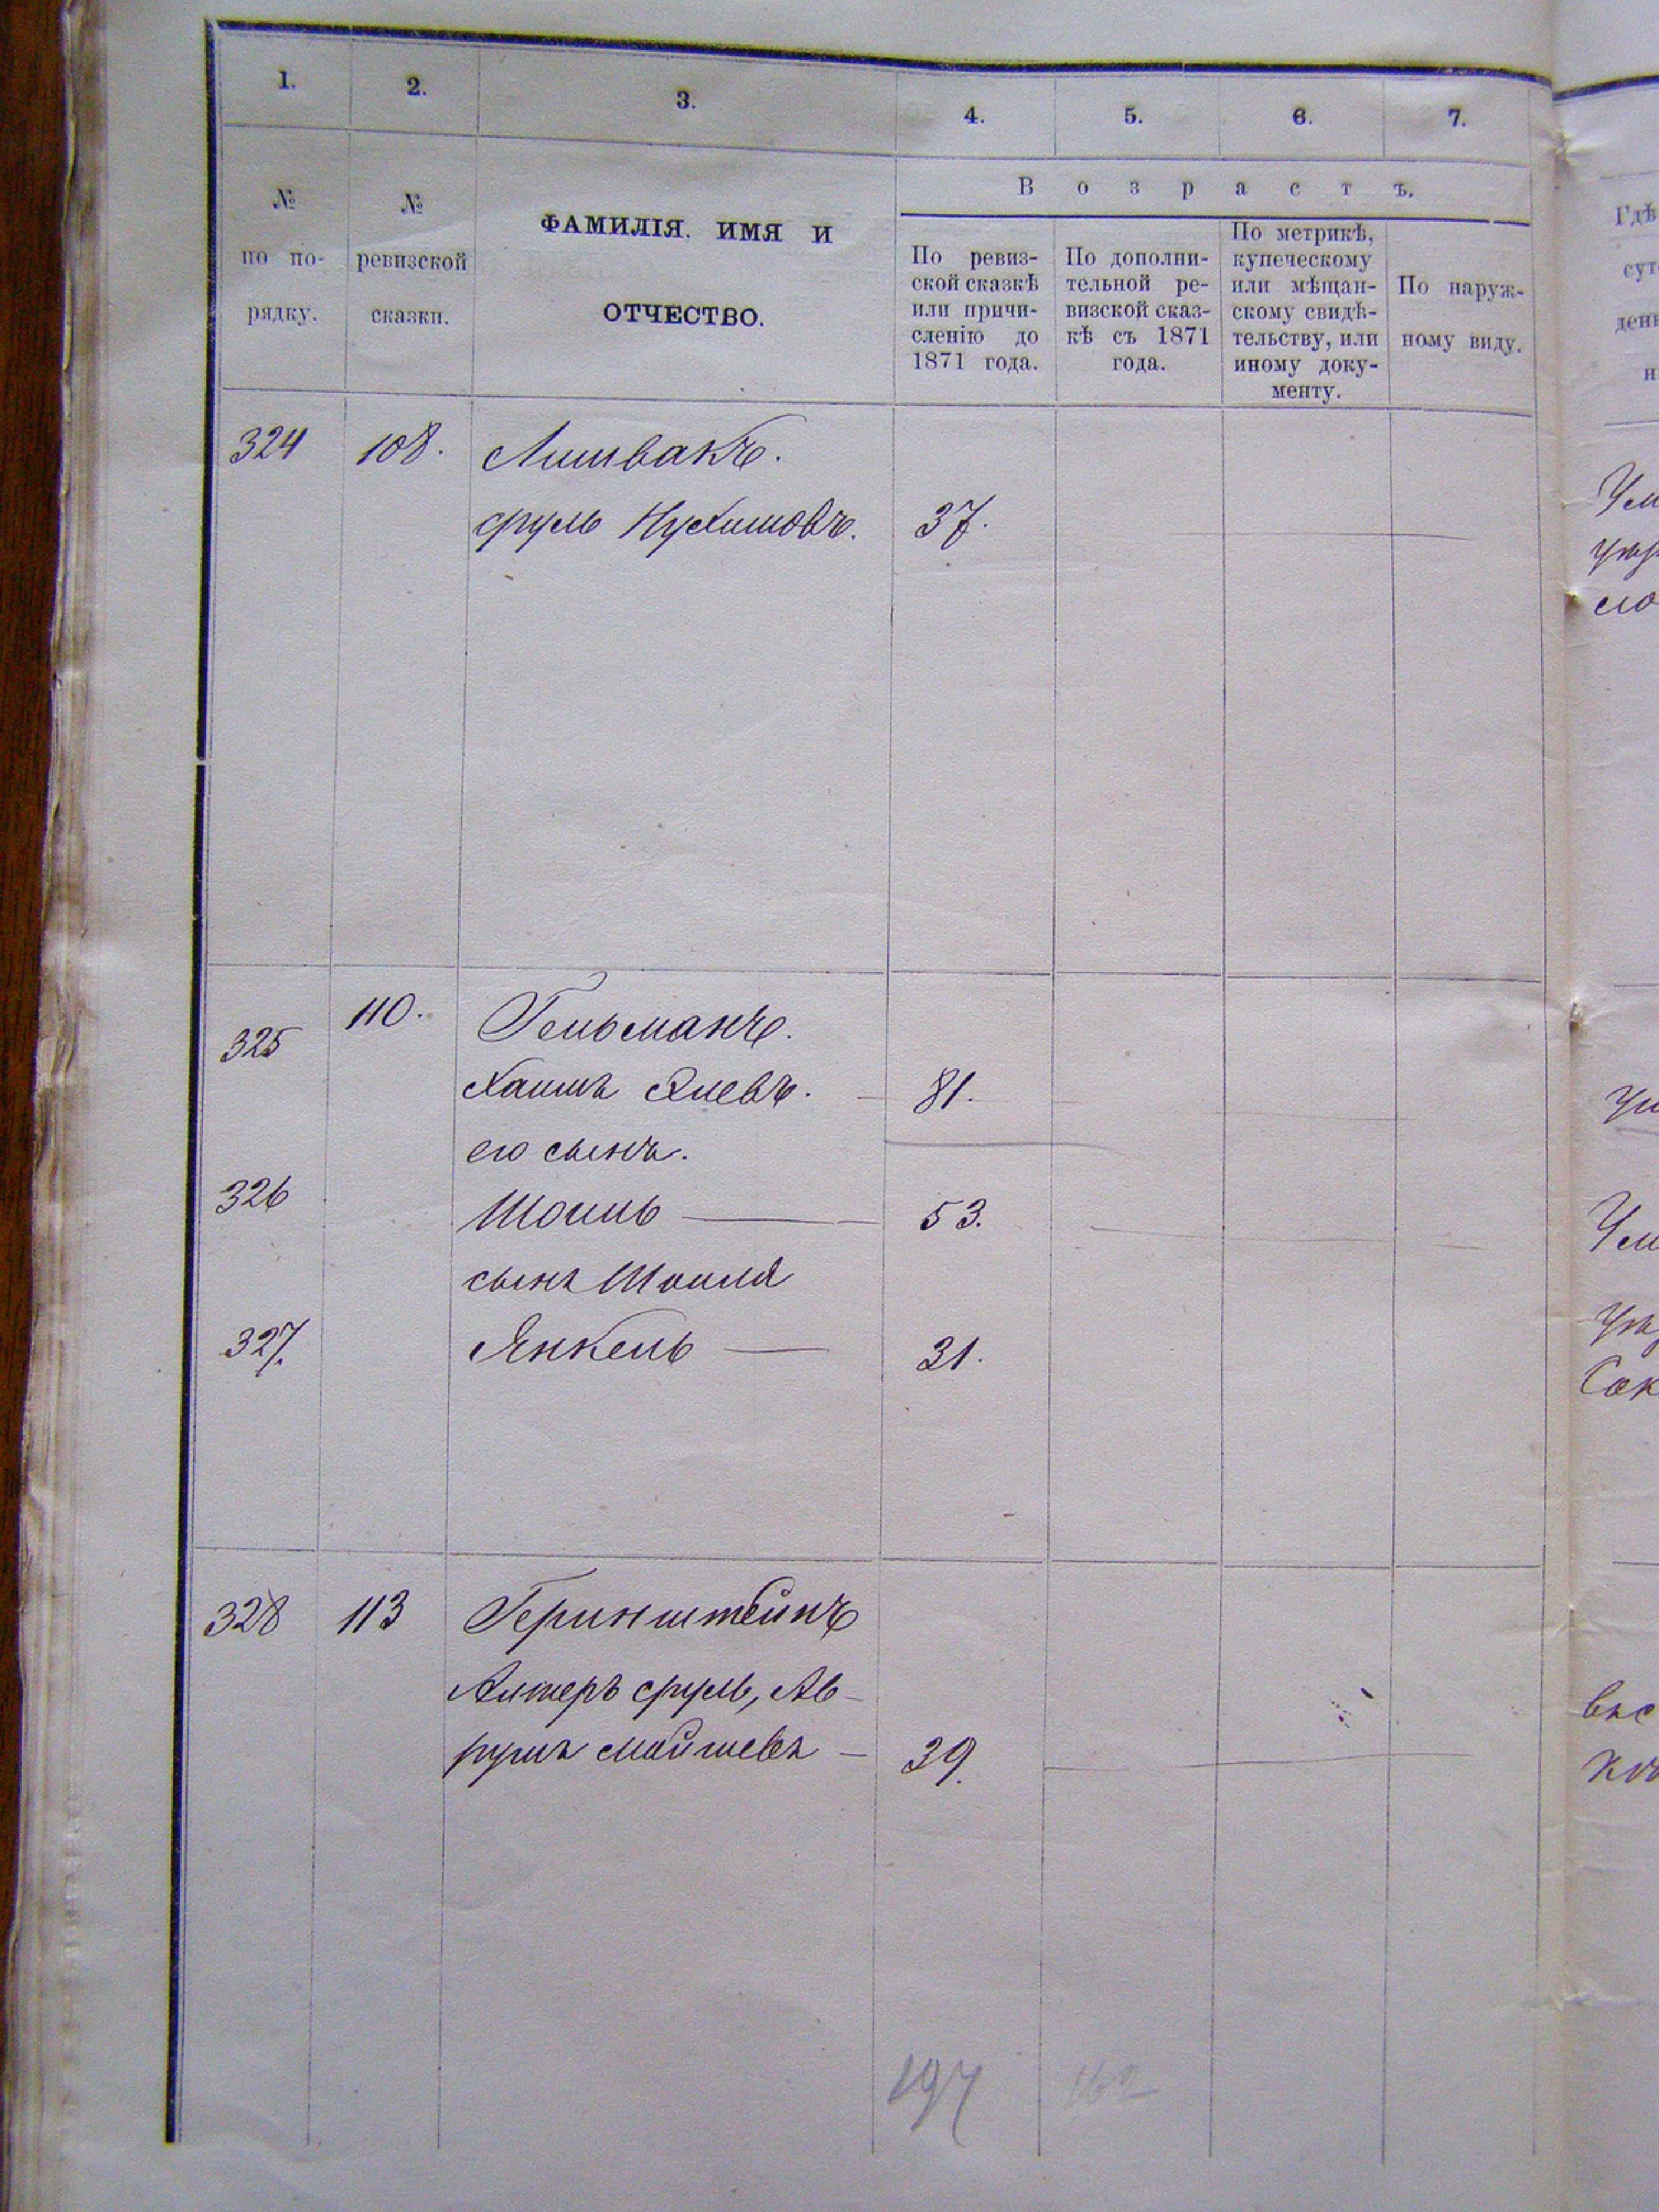 1. 2. 3. 4. 5. 6. 7.
В о з р а с т ъ.
№ по по-рядку.
№ ревизской сказки.
ФАМИЛІЯ, ИМЯ И
ОТЧЕСТВО.
По ревиз-
ской сказкѣ
или причи-
сленію до
1871 года.
По дополни-
тельной ре-
визской сказ-
кѣ съ 1871
года.
По метрикѣ,
купеческому
или мѣщан-
скому свидѣ-
тельству, или
иному доку-
менту.
По наруж-
ному виду.
324 108. Литвакъ.
Сруль Нухимовъ. 37.
325 110. Гельманъ.
Хаимъ Элевъ. 81.
его сынъ.
326 Шоиль 53.
сынъ Шоиля
327. Янкель 31.
328 113 Геринштейнъ
Алтеръ Сруль, Ав-
румъ Мойшевъ 39.
197 162